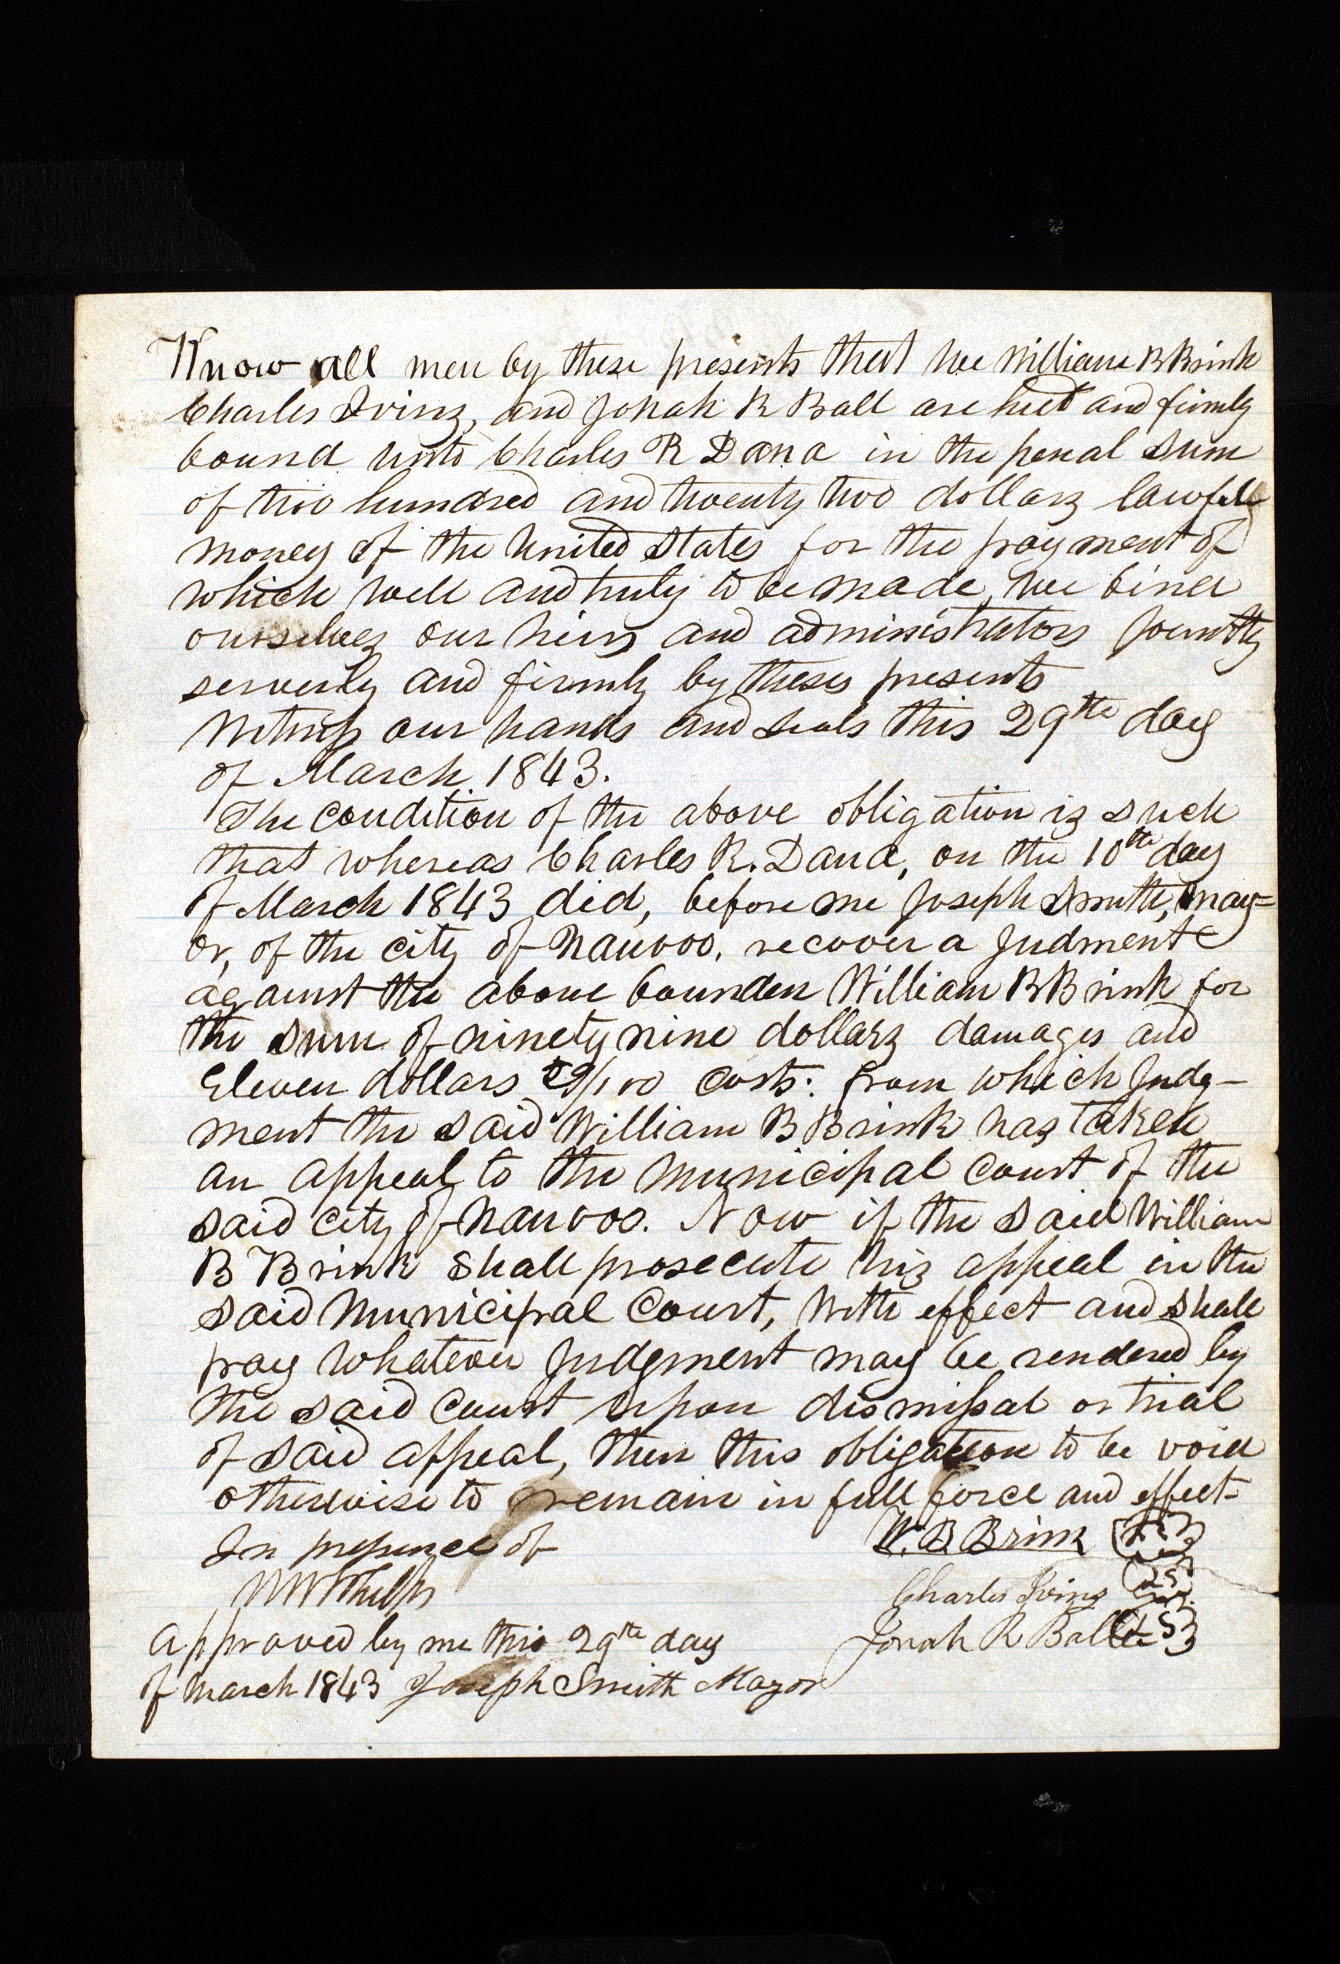 Know all men by these presents that we William B Brink
Charles Ivins, and Jonah R Ball are held and firmly
bound unto Charles R Dana in the penal sum
of two hundred and twenty two dollars lawful
money of the United States for the payment of
which well and truly to be made, we bind
ourselves our heirs and administrators jointly
serverly and firmly by theses presents
Witness our hands and seals this 29th day
of March 1843.
The condition of the above obligation is such
that whereas Charles R. Dana, on the 10th day
of March 1843 did, before me Joseph Smith, may=
or, of the city of Nauvoo, recover a Judment
against the above bounden William B Brink for
the sum of ninety nine dollars damages and
Eleven dollars /100 costs: from which Judg-
ment the said William B Brink has taken
an appeal to the Municipal Court of the
said city of Nauvoo. Now if the said William
B Brink shall prosecute his appeal in the
said Municipal Court, with effect and shall
pay whatever Judgment may be rendered by
the said Court upon dismissal or trial
of said appeal, then this obligation to be void
otherwise to remain in full force and effect-
In presence of
W. B Brink L S
W W Phelps
Charles Ivins L S
Jonah R Ball L S
Approved by me this 29th day
of March 1843 Joseph Smith Mayor